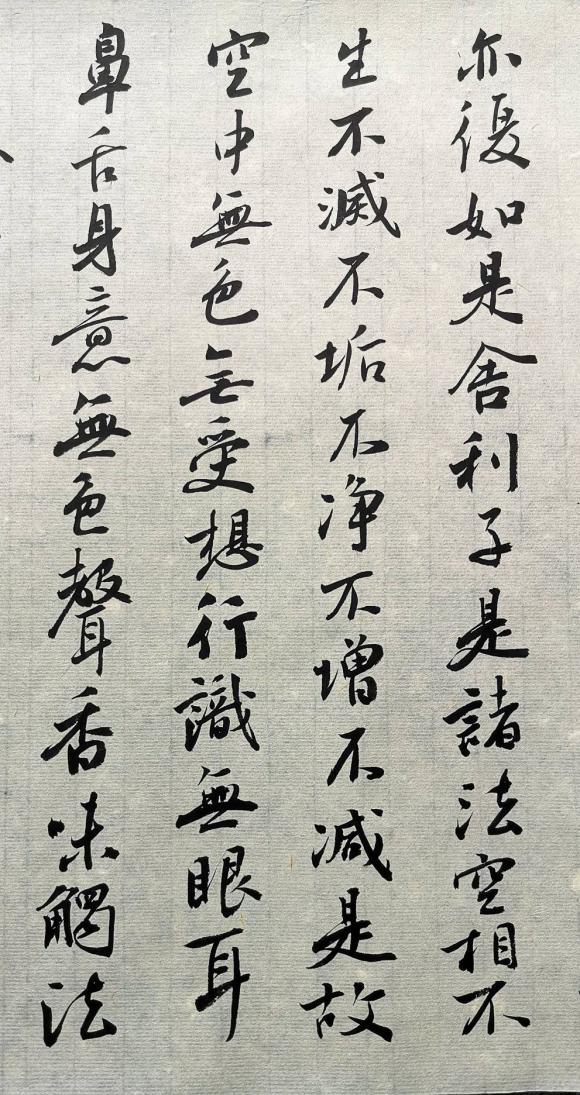 亦復如是舍利子是諸法空相不
生不滅不垢不净不增不减是故
空中無色无受想行識無眼耳
鼻舌身意無色聲香味觸法